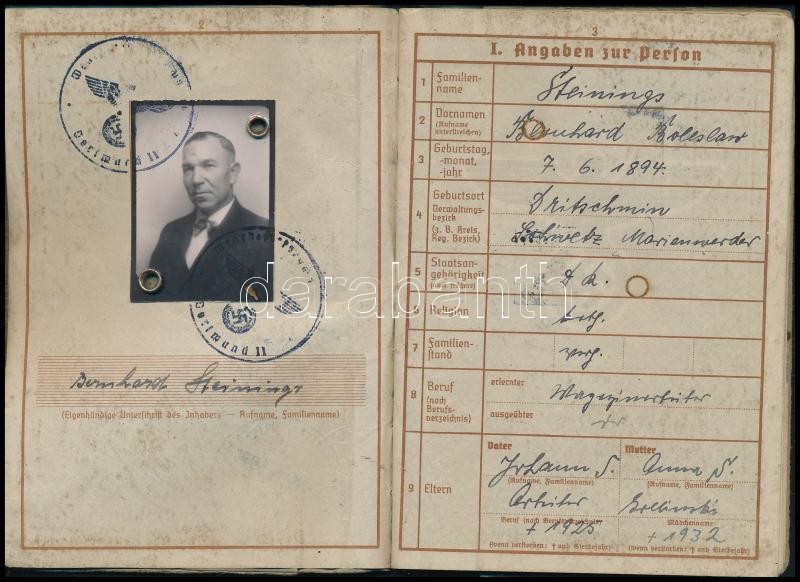 2
Dortmund II
Dortmund II
Bernhardt Steinings
(Eigenhändige Unterschrift des Inhabers — Rufname, Familienname)
3
I. Angaben zur Person
1 Familienname Steinings
2 Vornamen (Rufname unterstreichen) Bernhard Boleslaw
3 Geburtstag, -monat, -jahr 7. 6. 1894.
4 Geburtsort Dritschmin
Verwaltungsbezirk (z. B. Kreis, Reg. Bezirk) Schwetz Marienwerder
5 Staatsangehörigkeit (auch frühere) D. R.
6 Religion kath.
7 Familienstand verh.
8 Beruf (nach Berufsverzeichnis) erlernter Magazinarbeiter
ausgeübter
9 Eltern
Vater Mutter
Johann S. Anna S.
(Rufname, Familienname) (Rufname, Familienname)
Arbeiter
Beruf (nach Berufsverzeichnis) Mädchenname
† 1925 † 1932
(wenn verstorben: † und Sterbejahr) (wenn verstorben: † und Sterbejahr)
darabanth